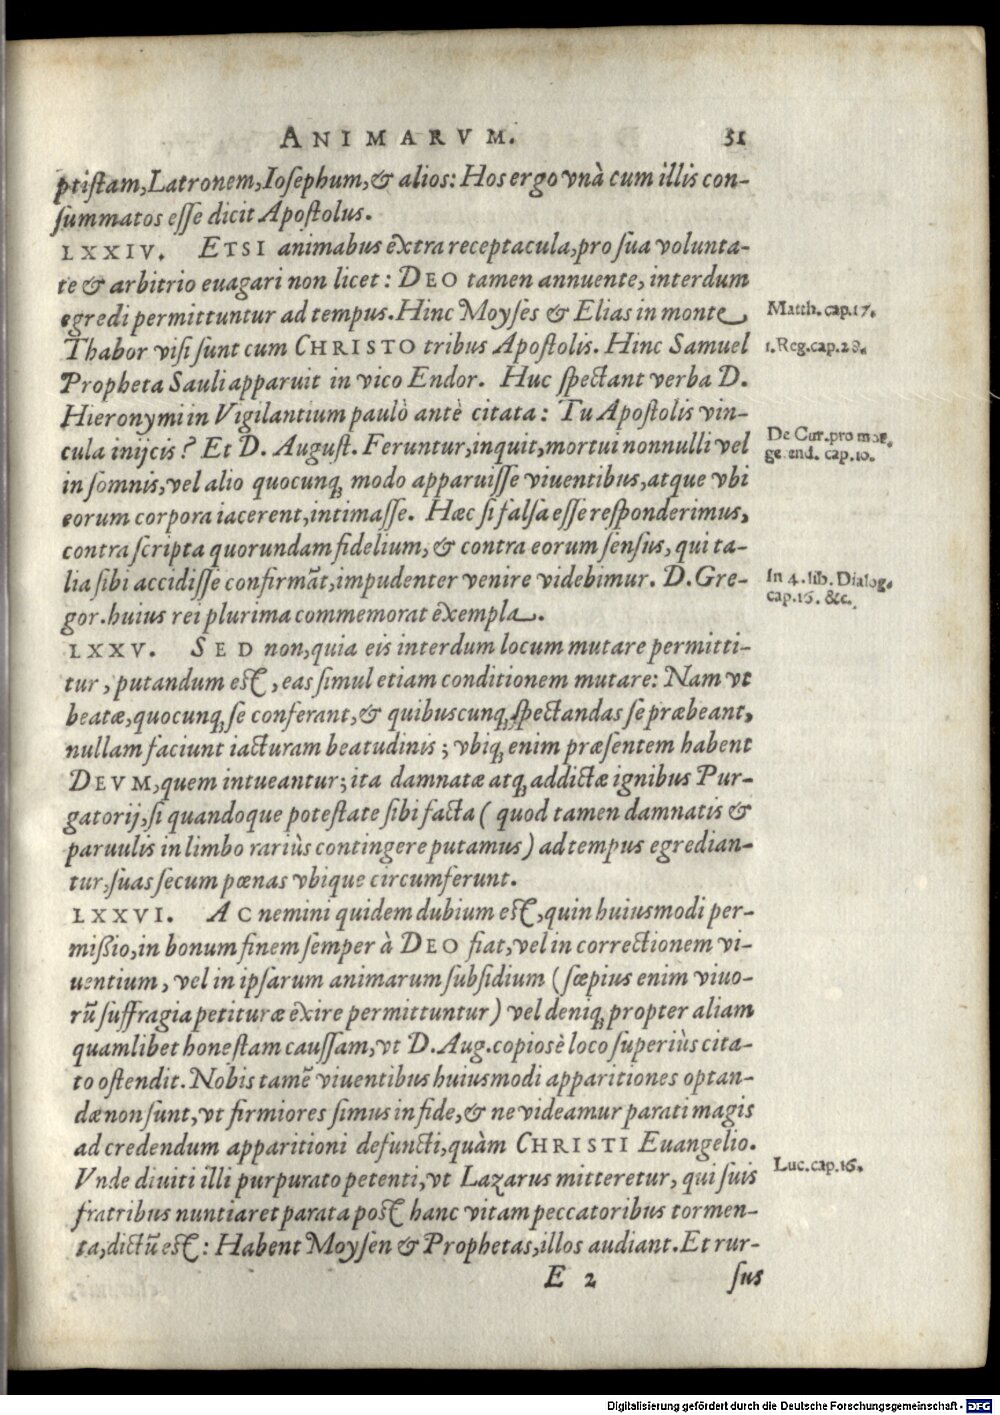 ANIMARVM. 31
ptistam, Latronem, Iosephum, & alios: Hos ergo vnà cum illis con-
summatos esse dicit Apostolus.
LXXIV. ETSI animabus extra receptacula, pro sua volunta-
te & arbitrio euagari non licet: DEO tamen annuente, interdum
egredi permittuntur ad tempus. Hinc Moyses & Elias in monte
Matth. cap. 17.
Thabor visi sunt cum CHRISTO tribus Apostolis. Hinc Samuel
1. Reg. cap. 28.
Propheta Sauli apparuit in vico Endor. Huc spectant verba D.
Hieronymi in Vigilantium paulò antè citata: Tu Apostolis vin-
cula inijcis? Et D. August. Feruntur, inquit, mortui nonnulli vel
De Cur. pro mor.
ge end. cap. 10.
in somnis, vel alio quocunq; modo apparuisse viuentibus, atque vbi
eorum corpora iacerent, intimasse. Hæc si falsa esse responderimus,
contra scripta quorundam fidelium, & contra eorum sensus, qui ta-
lia sibi accidisse confirmāt, impudenter venire videbimur. D. Gre-
In 4. lib. Dialog.
cap. 16. &c.
gor. huius rei plurima commemorat exempla.
LXXV. SED non, quia eis interdum locum mutare permitti-
tur, putandum est, eas simul etiam conditionem mutare: Nam vt
beatæ, quocunq; se conferant, & quibuscunq; spectandas se præbeant,
nullam faciunt iacturam beatudinis; vbiq; enim præsentem habent
DEVM, quem intueantur; ita damnatæ atq; addictæ ignibus Pur-
gatorij, si quandoque potestate sibi facta (quod tamen damnatis &
paruulis in limbo rariùs contingere putamus) ad tempus egredian-
tur, suas secum pœnas vbique circumferunt.
LXXVI. AC nemini quidem dubium est, quin huiusmodi per-
mißio, in bonum finem semper à DEO fiat, vel in correctionem vi-
uentium, vel in ipsarum animarum subsidium (sæpius enim viuo-
rū suffragia petituræ exire permittuntur) vel deniq; propter aliam
quamlibet honestam caussam, vt D. Aug. copiosè loco superiùs cita-
to ostendit. Nobis tamē viuentibus huiusmodi apparitiones optan-
dæ non sunt, vt firmiores simus in fide, & ne videamur parati magis
ad credendum apparitioni defuncti, quàm CHRISTI Euangelio.
Vnde diuiti illi purpurato petenti, vt Lazarus mitteretur, qui suis
Luc. cap. 16.
fratribus nuntiaret parata post hanc vitam peccatoribus tormen-
ta, dictū est: Habent Moysen & Prophetas, illos audiant. Et rur-
E 2 sus
Digitalisierung gefördert durch die Deutsche Forschungsgemeinschaft - DFG